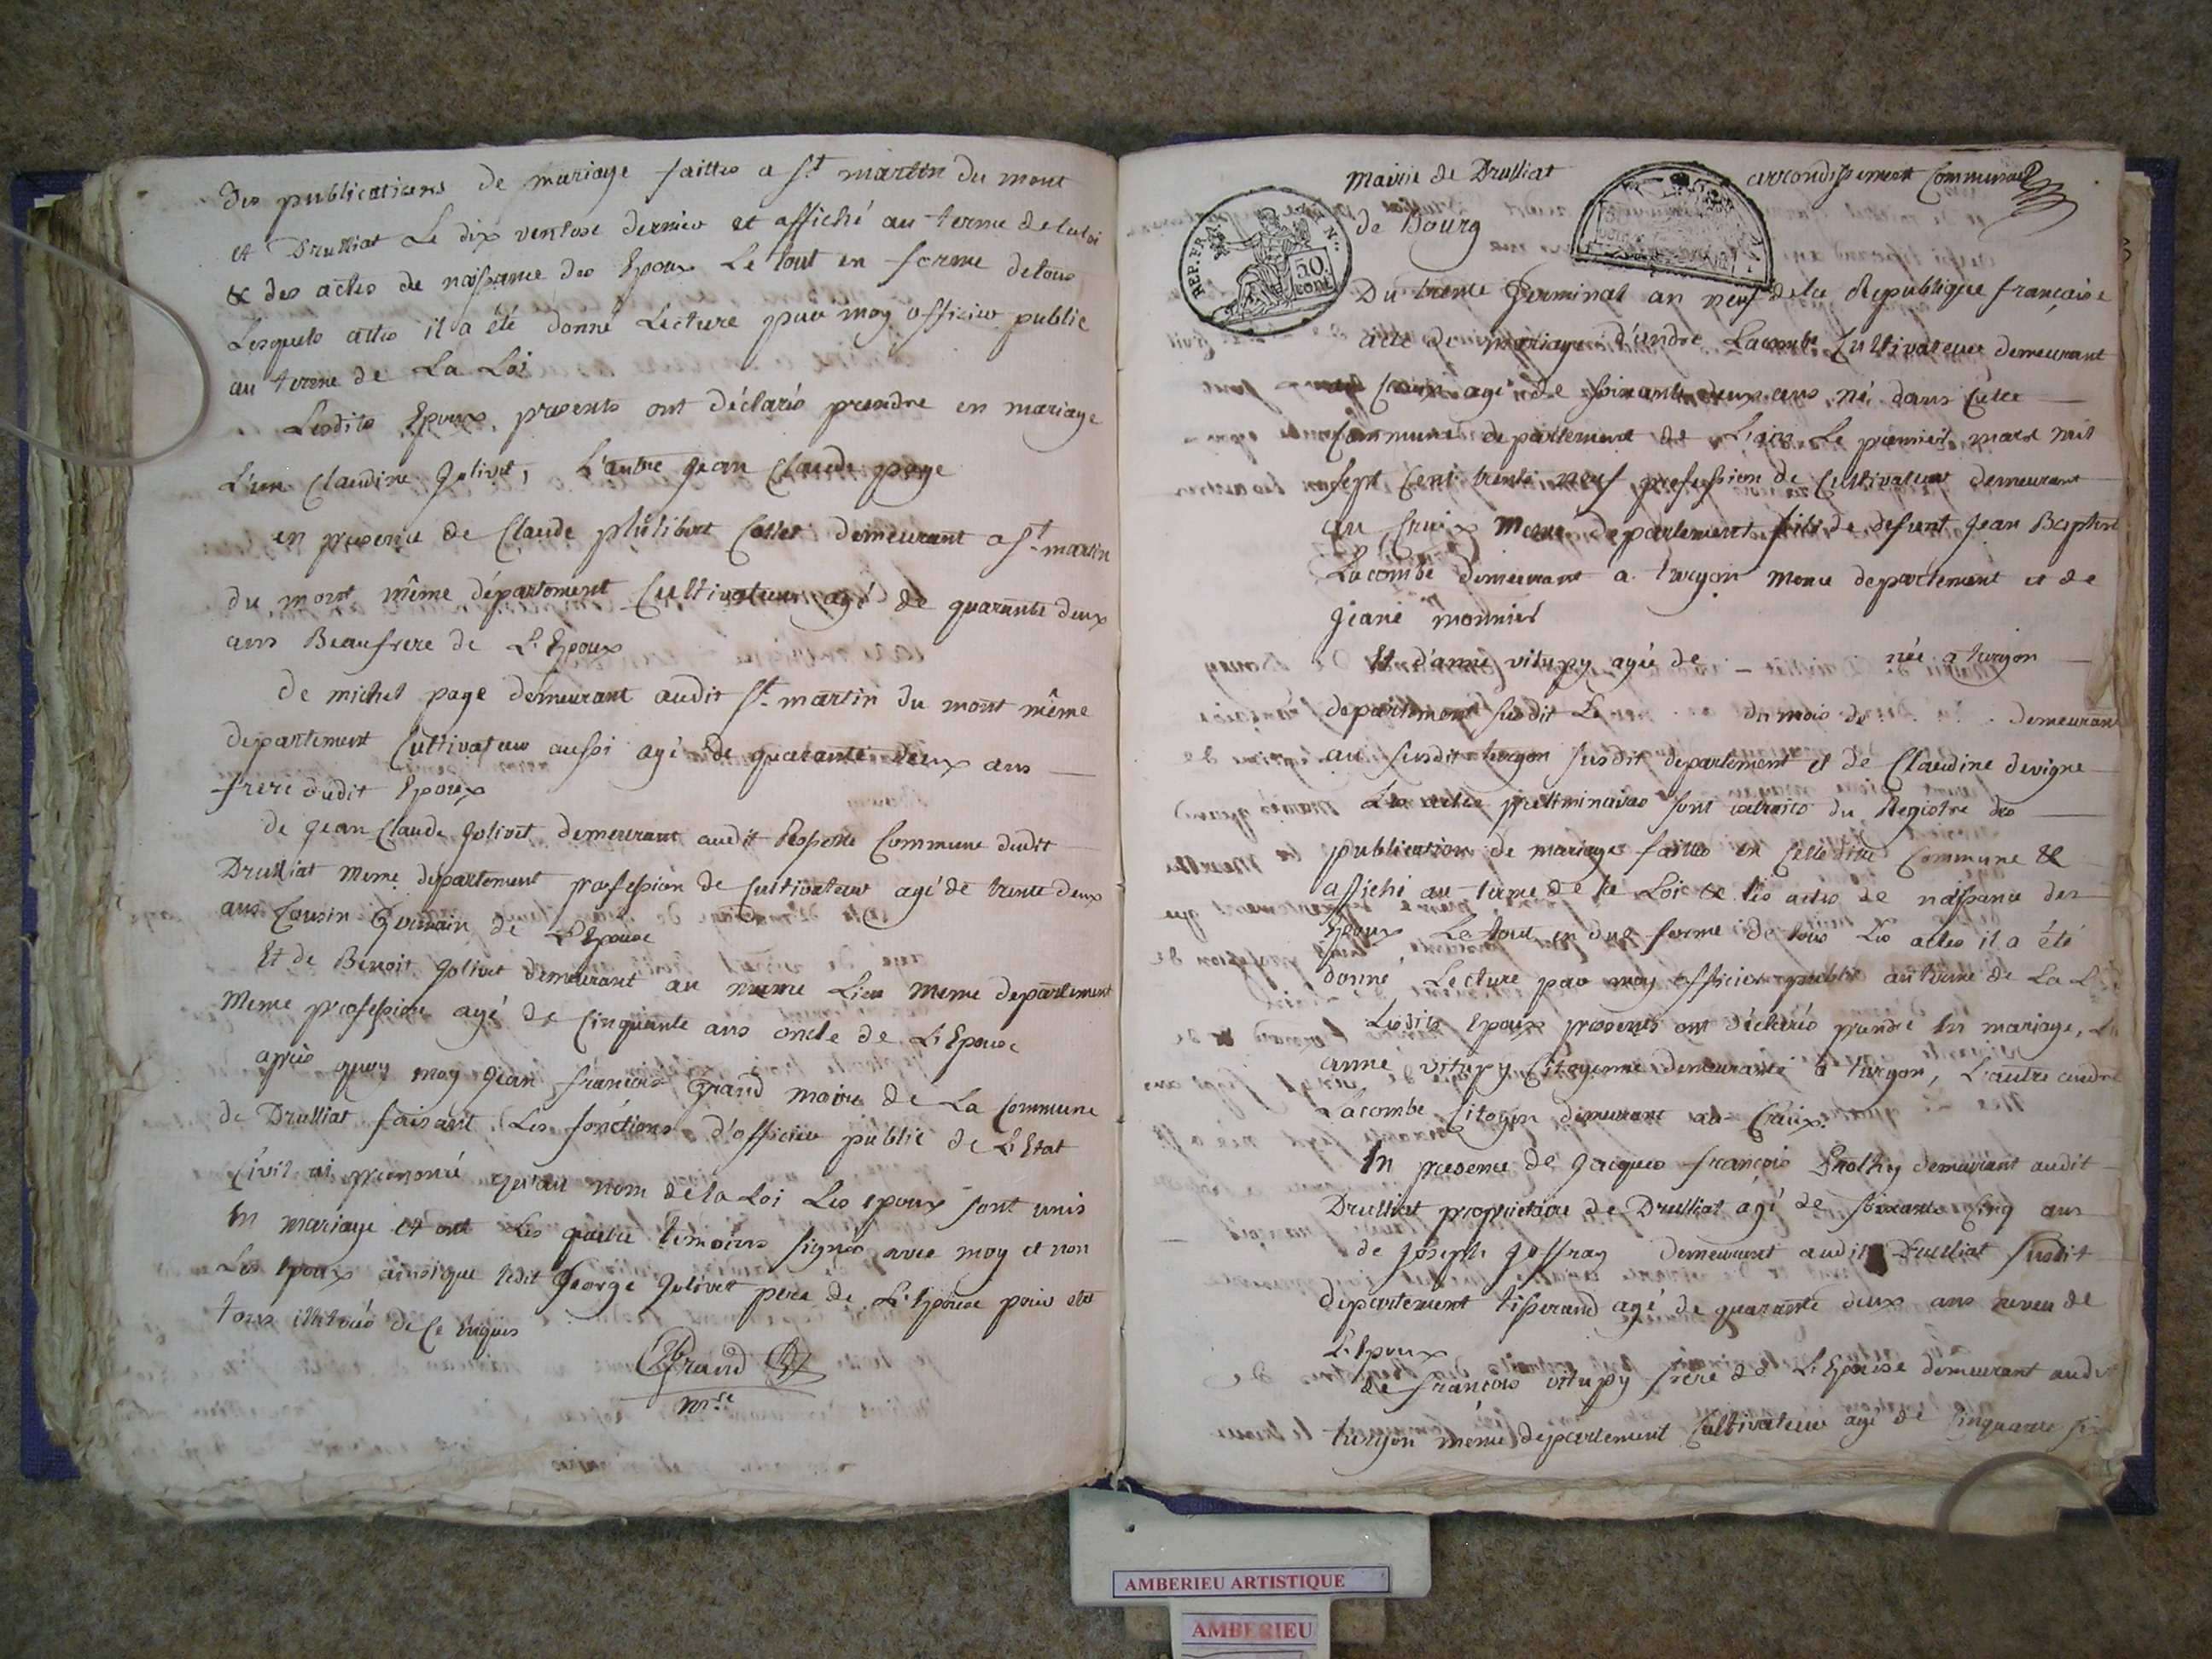 des publications de mariage faittes a St martin du mont
et Drulliat Le dix ventose dernier et affiché au terme de la loi
& des actes de naissance des Epoux Le tout en forme de tous
Lesquels actes il a été donné Lecture par moy officier public
au terme de La Loi
Lesdits Epoux presents ont déclarés prendre en mariage
L'un Claudine Jolivet, L'autre Jean Claude page
en presence de Claude philibert Collet demeurant a St martin
du mont même département Cultivateur agé de quarante deux
ans Beaufrere de L'Epoux
de michel page demeurant audit St martin du mont même
departement Cultivateur aussi agé de quarante deux ans
frere dudit Epoux
de Jean Claude Jolivet demeurant audit Commune dudit
Drulliat meme département profession de Cultivateur agé de trente deux
ans Cousin Germain de L'Epouse
Et de Benoit Jolivet demeurant au meme Lieu meme departement
meme profession agé de Cinquante ans oncle de L'Epouse
après quoy moy Jean françois Grand maire de La Commune
de Drulliat faisant Les fonctions d'officier public de L'Etat
Civil ai prononcé qu'au nom de la Loi Les epoux sont unis
En mariage et ont Les quatre temoins signés avec moy et non
Les epoux ainsi que ledit George Jolivet pere de L'Epouse pour etre
tous illiterés de Ce enquis
Grand
mre
mairie de Drulliat arrondissement Communal
de Bourg
REP. FRA. 50 cent.
Du trente Germinal an neuf de la Republique française
acte de mariage d'andré Lacombe Cultivateur demeurant
au Craix agé de soixante deux ans, né dans Cette
Commune departement de L'ain Le premier mars mil
sept Cent trente neuf profession de Cultivateur demeurant
au Craix meme departement fils de defunt Jean Baptiste
Lacombe demeurant a turgon meme departement et de
Jeane monnier
Et d'anne vitupy agée de née a turgon
departement susdit Le du mois de demeurant
au susdit turgon susdit departement et de Claudine devigne
Les actes preliminaires sont extraits du Registre des
publication de mariage faittes en Cette dite Commune &
affiché au terme de la Loi & les actes de naissance des
Epoux Le tout en due forme de tous Les actes il a été
donné Lecture par moy officier public au terme de La L
Lesdits Epoux presents ont déclarés prendre En mariage,
anne vitupy Citoyenne demeurante a turgon, L'autre andré
Lacombe Citoyen demeurant au Craix.
En presence de Jacques françois demeurant audit
Drulliat proprietaire de Drulliat agé de soixante Cinq ans
de Joseph Joffray demeurant audit Drulliat susdit
departement tisserand agé de quarante deux ans neveu de
L'Epoux
de françois vitupy frere de L'Epouse demeurant audit
turgon meme departement Cultivateur agé de Cinquante
AMBERIEU ARTISTIQUE
AMBERIEU